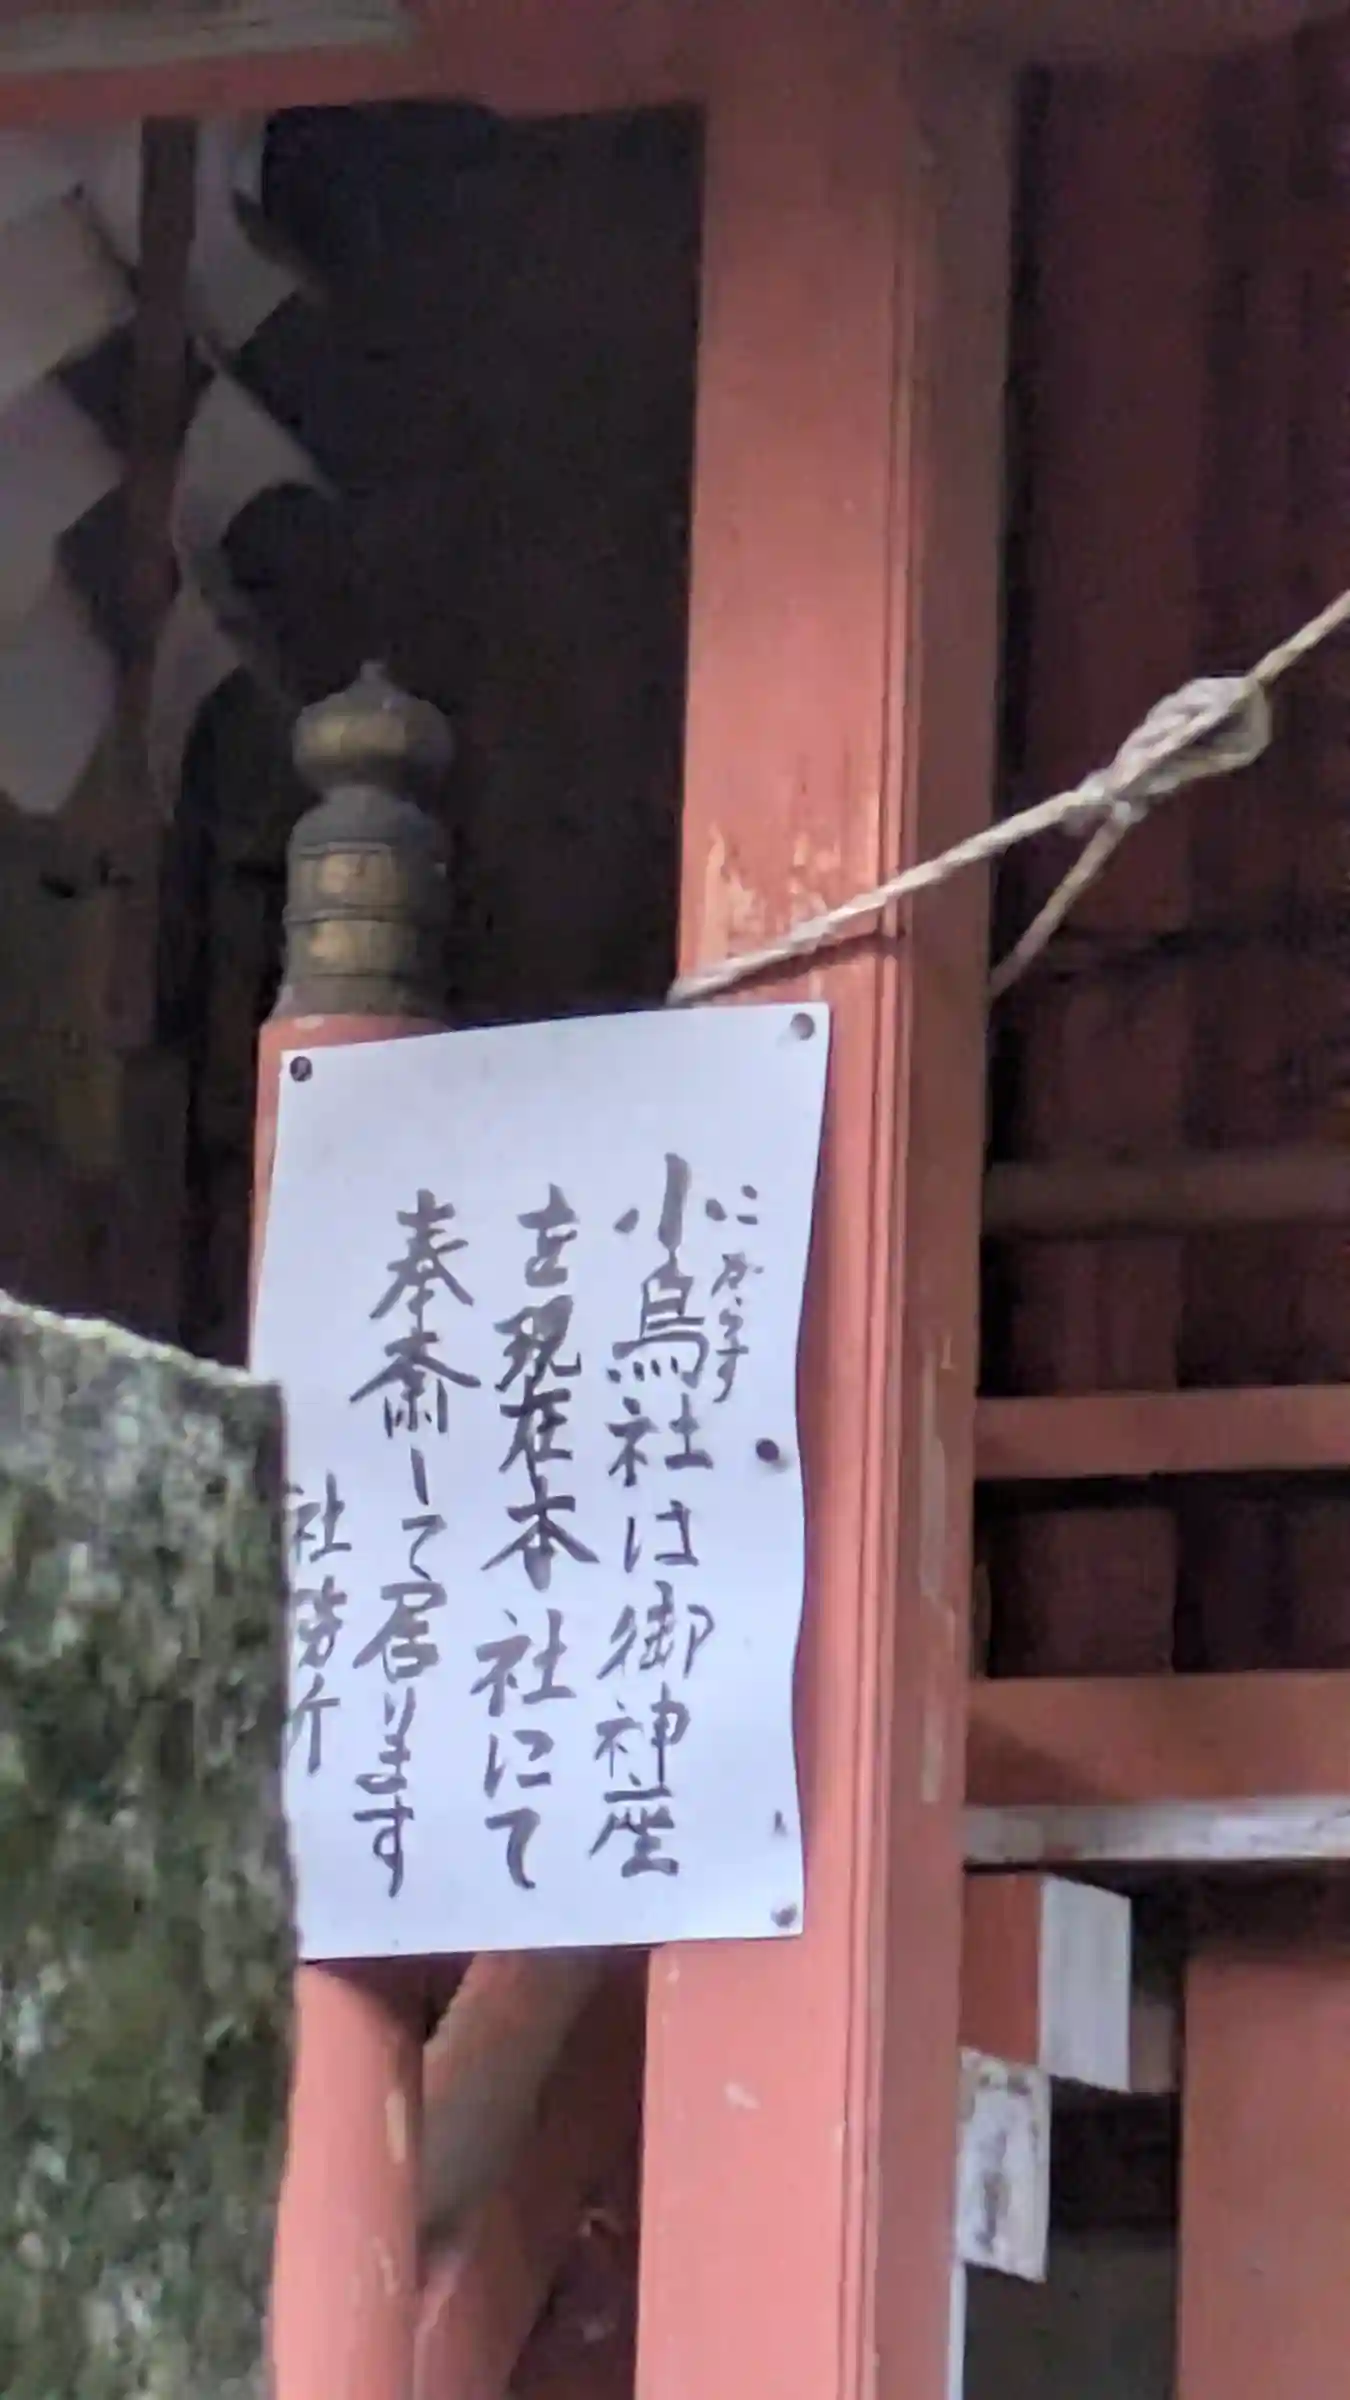 にがらす
小烏社は御神座
を現在本社にて
奉斎して居ります
社務所